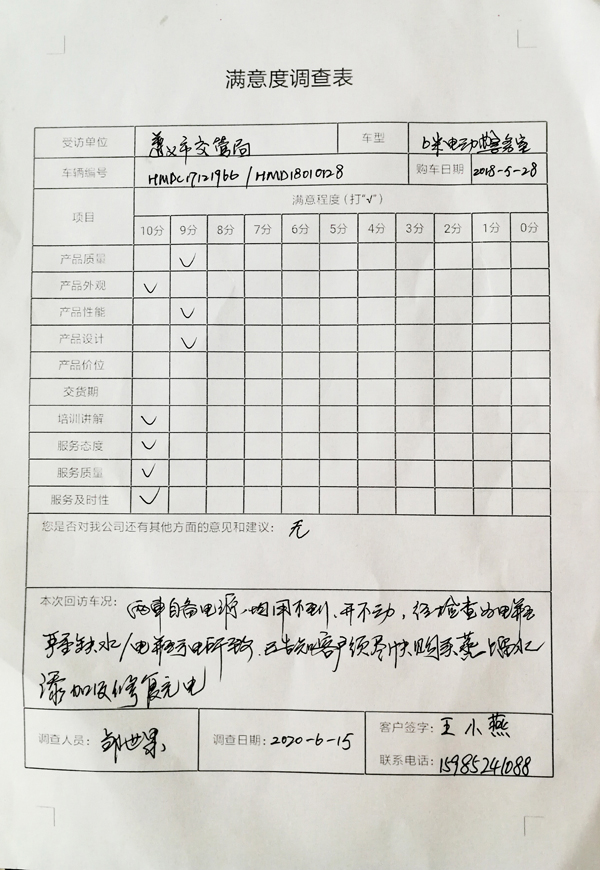 满意度调查表
受访单位 遵义市交管局 车型 6米电动警务室
车辆编号 HMDC17121966 / HMD18010128 购车日期 2018-5-28
项目 满意程度(打"√")
10分 9分 8分 7分 6分 5分 4分 3分 2分 1分 0分
产品质量 √
产品外观 √
产品性能 √
产品设计 √
产品价位
交货期
培训讲解 √
服务态度 √
服务质量 √
服务及时性 √
您是否对我公司还有其他方面的意见和建议: 无
本次回访车况: 两车自备电源均用不到、开不动,经检查为电瓶
严重缺水/电瓶亏电所致,已告知客户须尽快购买蒸馏水
添加及修复充电
调查人员: 调查日期: 2020-6-15 客户签字: 王小燕
联系电话: 15985241088